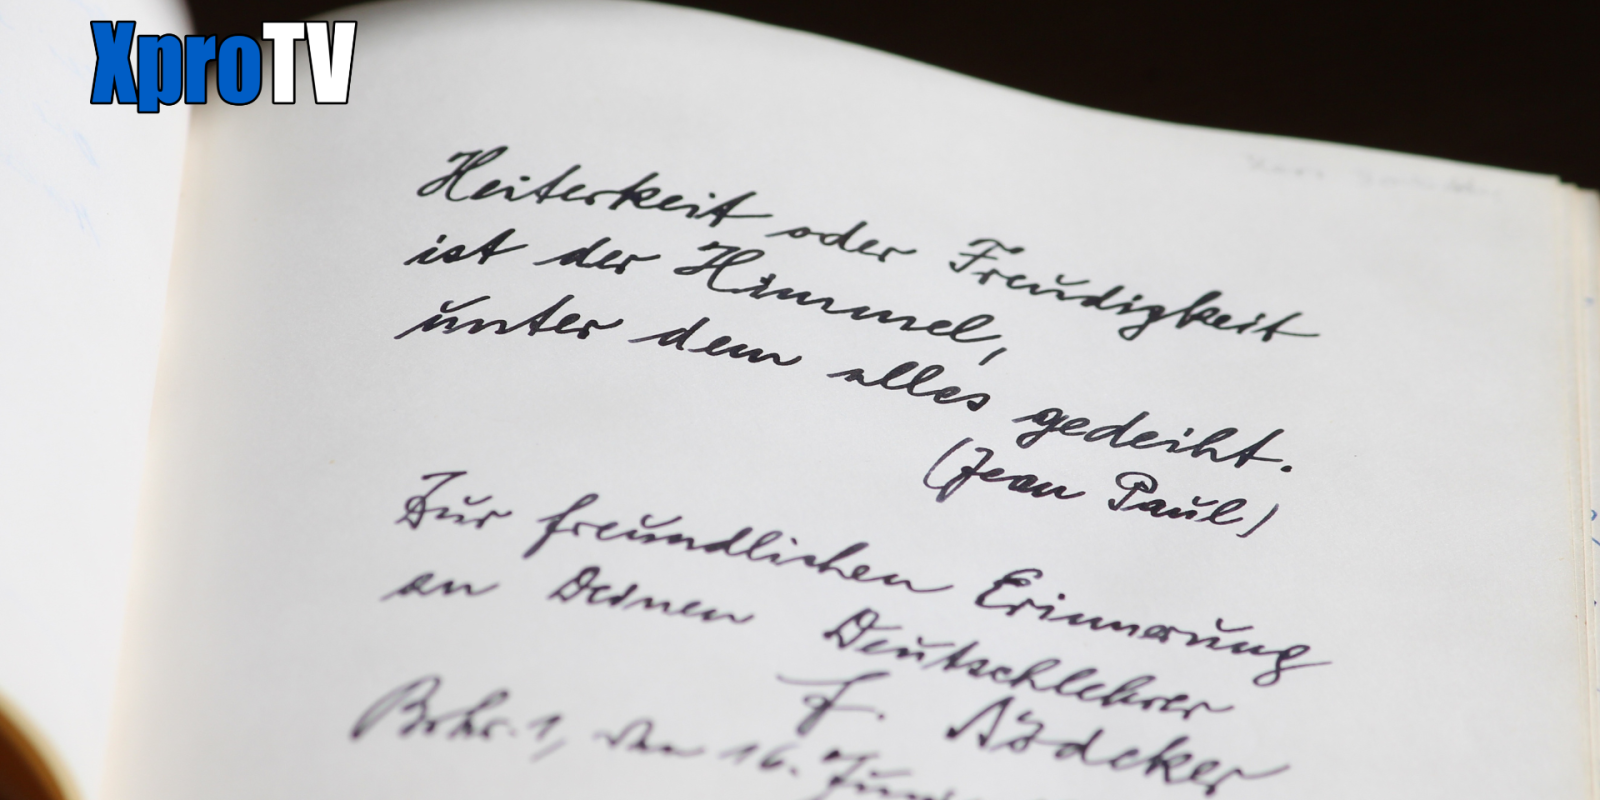 XproTV
Heiterkeit oder Freudigkeit
ist der Himmel,
unter dem alles gedeiht.
(Jean Paul)
Zur freundlichen Erinnerung
an Deinen Deutschlehrer
F.
den 16. Juni